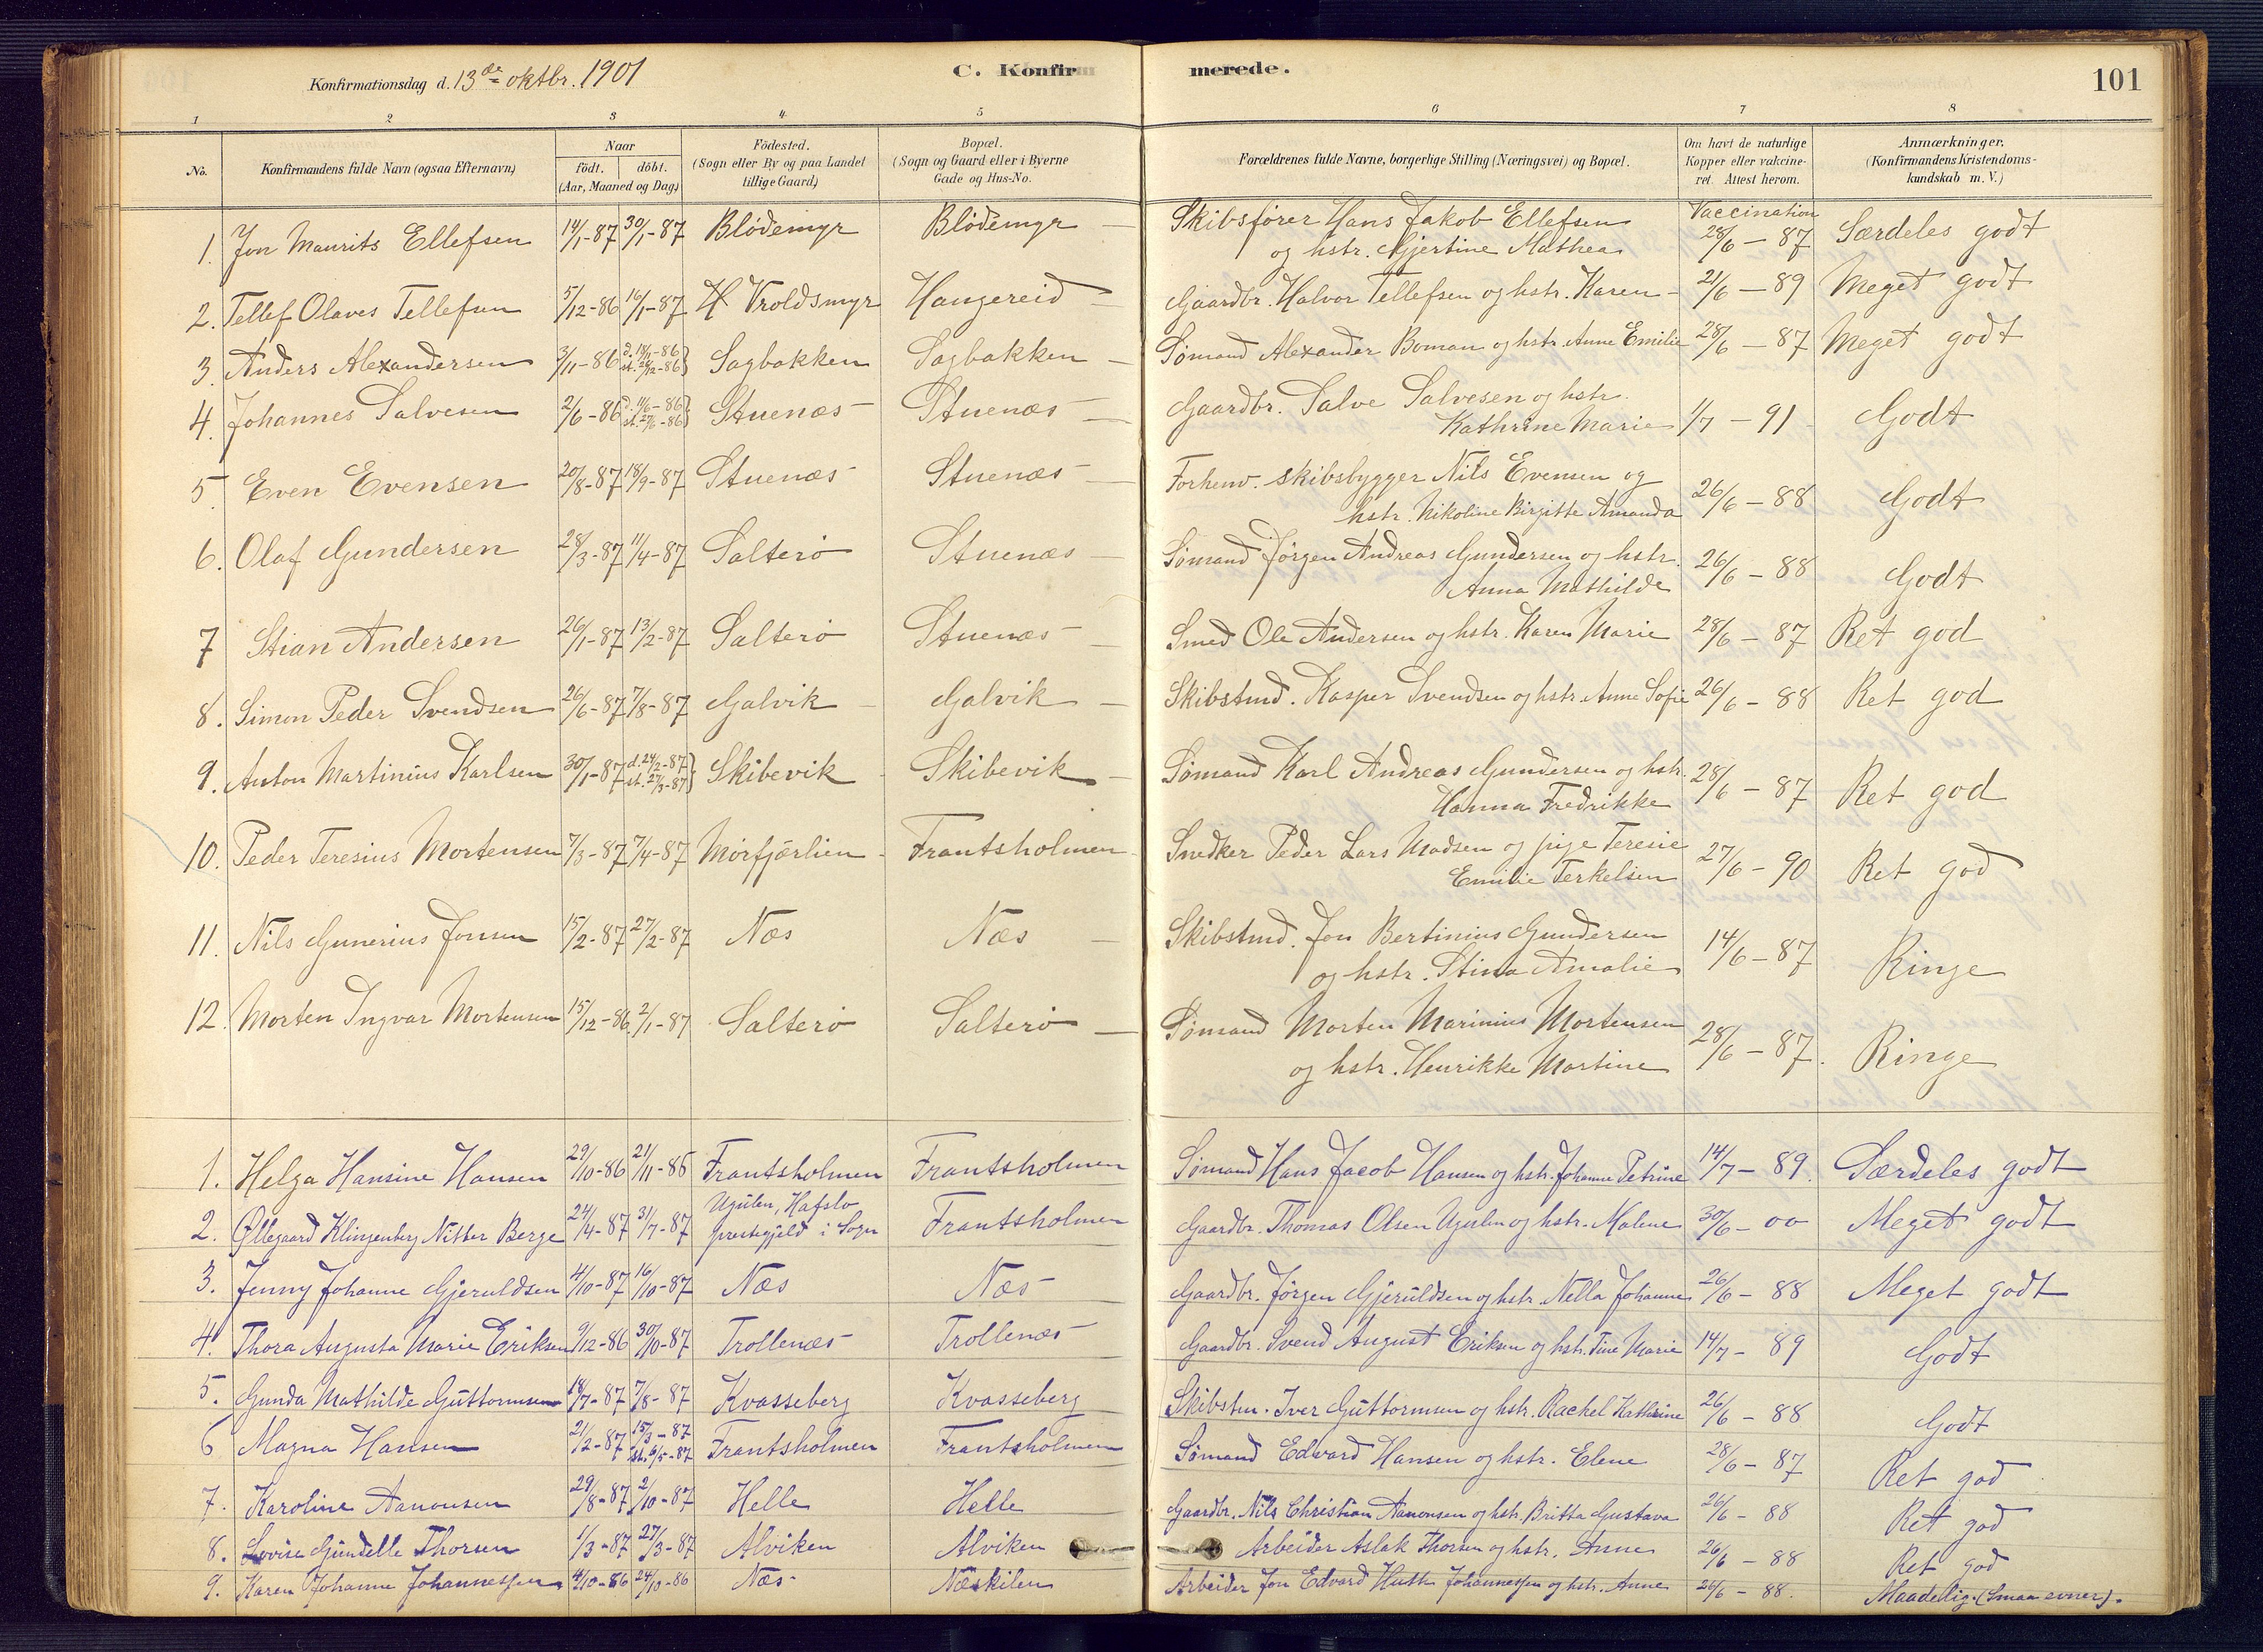 Konfirmationsdag d. 13de oktbr. 1901
C. Konfirmerede.
101
1 2 3 4 5 6 7 8
No. Konfirmandens fulde Navn (ogsaa Efternavn) Naar födt. döbt. (Aar, Maaned og Dag) Födested. (Sogn eller By og paa Landet tillige Gaard) Bopæl. (Sogn og Gaard eller i Byerne Gade og Hus-No. Forældrenes fulde Navne, borgerlige Stilling (Næringsvei) og Bopæl. Om havt de naturlige Kopper eller vakcineret. Attest herom. Anmærkninger. (Konfirmandens Kristendomskundskab m. V.)
1. Jon Maurits Ellefsen 14/1-87 30/1-87 Blödemyr Blödemyr Skibsfører Hans Jakob Ellefsen og hstr. Gjertine Mathea Vaccination 28/6-87 Særdeles godt
2. Tellef Olaves Tellefsen 5/12-86 16/1-87 Vroldsmyr Haugereid Gaardbr. Halvor Tellefsen og hstr. Karen 21/6-89 Meget godt
3. Anders Alexandersen 3/11-86 Sagbakken Sagbakken Sømand Alexander Boman og hstr. Anne Emilie 28/6-87 Meget godt
4. Johannes Salvesen 2/6-86 d. 11/6-86 st. 27/6-86 Stuenæs Stuenæs Gaardbr. Salve Salvesen og hstr. Kathrine Marie 1/7-91 Godt
5. Even Evensen 20/8-87 18/9-87 Stuenæs Stuenæs Forhenv. skibsbygger Nils Evensen og hstr. Nikoline Birgitte Amanda 26/6-88 Godt
6. Olaf Gundersen 28/3-87 11/4-87 Salterö Stuenæs Sømand Jørgen Andreas Gundersen og hstr. Anna Mathilde 26/6-88 Godt
7 Stian Andersen 26/1-87 13/2-87 Salterö Stuenæs Smed Ole Andersen og hstr. Karen Marie 28/6-87 Ret god
8. Simon Peder Svendsen 26/6-87 7/8-87 Galvik Galvik Skibstmd. Kasper Svendsen og hstr. Anne Sofie 26/6-88 Ret god
9. Anton Martinius Karlsen 30/1-87 d. 24/2-87 st. 27/3-87 Skibevik Skibevik Sømand Karl Andreas Gundersen og hstr. Hanna Fredrikke 28/6-87 Ret god
10. Peder Teresius Mortensen 7/3-87 7/4-87 Mörfjærlien Frantsholmen Snedker Peder Lars Madsen og pige Teresie Emilie Terkelsen 27/6-90 Ret god
11. Nils Gunerius Jonsen 15/2-87 27/2-87 Næs Næs Skibstmd. Jon Bertinius Gundersen og hstr. Stina Amalie 14/6-87 Ringe
12. Morten Ingvar Mortensen 15/12-86 2/1-87 Salterö Salterö Sømand Morten Marinius Mortensen og hstr. Henrikke Martine 28/6-87. Ringe
1. Helga Hansine Hansen 29/10-86 21/11-86 Frantsholmen Frantsholmen Sømand Hans Jacob Hansen og hstr. Johanne Petrine 14/7-89. Særdeles godt
2. Øllegaard Klingenberg Nitter Berge 24/4-87 31/7-87 Ugulen, Hafslo prestegjeld i Sogn Frantsholmen Gaardbr. Thomas Olsen Ugulen og hstr. Malene 30/6-00 Meget godt
3. Jenny Johanne Gjeruldsen 4/10-87 16/10-87 Næs Næs Gaardbr. Jörgen Gjeruldsen og hstr. Nella Johanne 26/6-88 Meget godt
4. Thora Augusta Marie Eriksen 9/12-86 30/10-87 Trollenæs Trollenæs Gaardbr. Svend August Eriksen og hstr. Tine Marie 14/7-89 Godt
5. Gunda Mathilde Guttormsen 18/7-87 7/8-87 Kvasseberg Kvasseberg Skibstm. Iver Guttormsen og hstr. Rachel Kathrine 26/6-88 Godt
6 Magna Hansen 21/2-87 15/3-87 st. 6/5-87 Frantsholmen Frantsholmen Sømand Edvard Hansen og hstr. Elene 28/6-87 Ret god
7. Karoline Aanonsen 29/8-87 2/10-87 Helle Helle Gaardbr. Nils Christian Aanonsen og hstr. Britta Gustava 26/6-88 Ret god
8. Lovise Gundelle Thorsen 1/3-87 27/3-87 Alviken Alviken Arbeider Aslak Thorsen og hstr. Anne 26/6-88 Ret god
9. Karen Johanne Johannessen 4/10-86 24/10-86 Næs Næskilen Arbeider Jon Edvard Huth Johannessen og hstr. Anne 26/6-88. Maadelig. (Smaa evner).